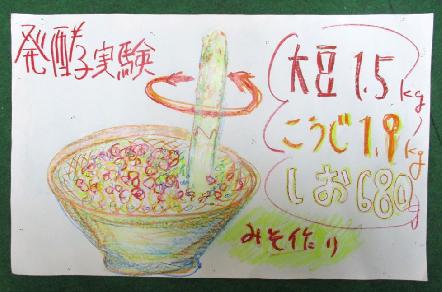 発酵実験
大豆 1.5kg
こうじ 1.9kg
しお 680g
みそ作り